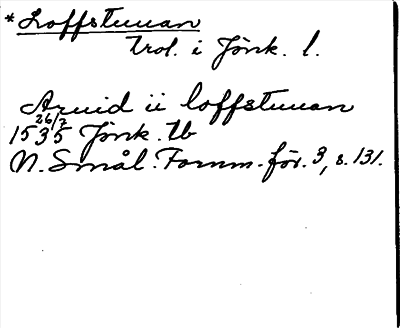 * Loffstuuan
trol. i Jönk. l.
Aruid ii loffstuuan
26/7
1535 Jönk. tb
N. Smål. Fornm.-för. 3, s. 131.